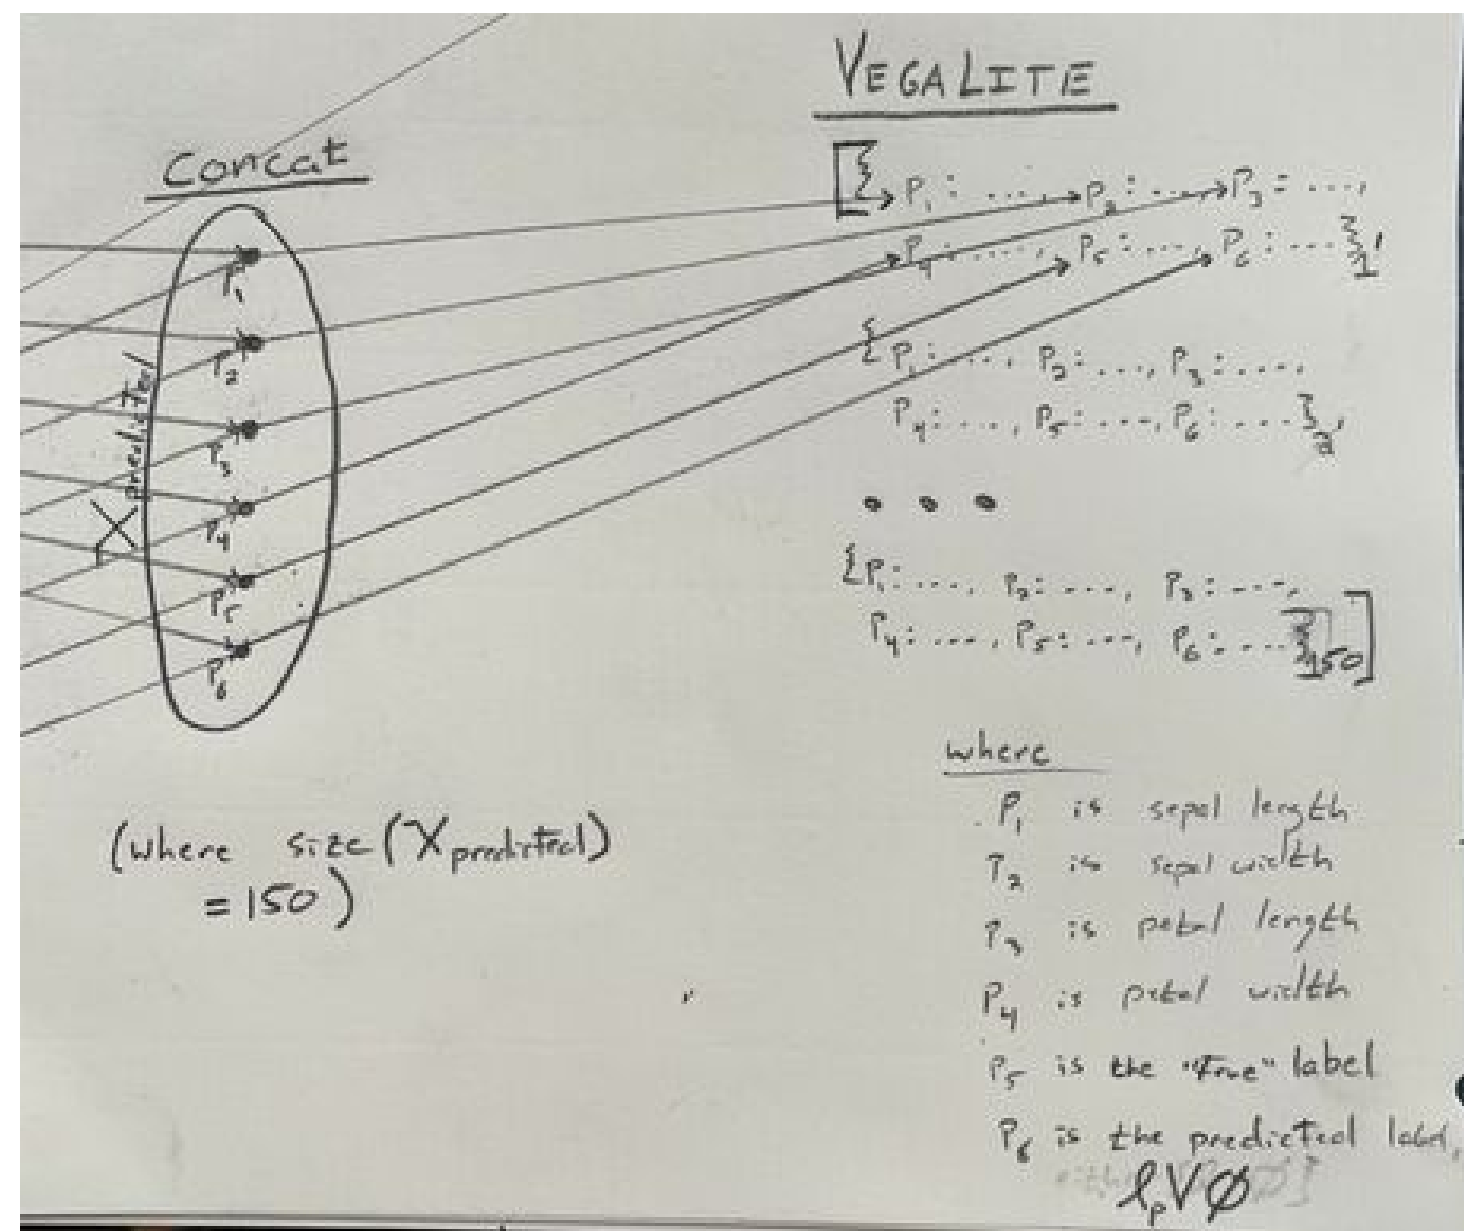 VEGALITE
Concat
[{ P₁: ...., P₂: ...., P₃: ....,
P₄: ...., P₅: ...., P₆: .... }₁,
P₁
P₂
P₃
P₄
P₅
P₆
X predicted
{ P₁: ...., P₂: ...., P₃: ....,
P₄: ...., P₅: ...., P₆: .... }₂,
• • •
{P₁: ...., P₂: ...., P₃: ....,
P₄: ...., P₅: ...., P₆: .... }₁₅₀]
(where size(X predicted)
= 150)
where
P₁ is sepal length
P₂ is sepal width
P₃ is petal length
P₄ is petal width
P₅ is the "true" label
P₆ is the predicted label,
ℓₚ V Ø